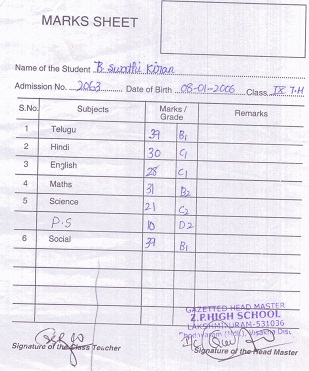 MARKS SHEET
Name of the Student B Swathi Kiran
Admission No. 2063 Date of Birth 08-01-2006 Class IX T.M
S.No. Subjects Marks / Grade Remarks
1 Telugu 39 B1
2 Hindi 30 C1
3 English 28 C1
4 Maths 31 B2
5 Science 21 C2
P.S 10 D2
6 Social 39 B1
GAZETTED HEAD MASTER
Z.P.HIGH SCHOOL
LAKSHMIPURAM-531036
Signature of the Class Teacher
Signature of the Head Master